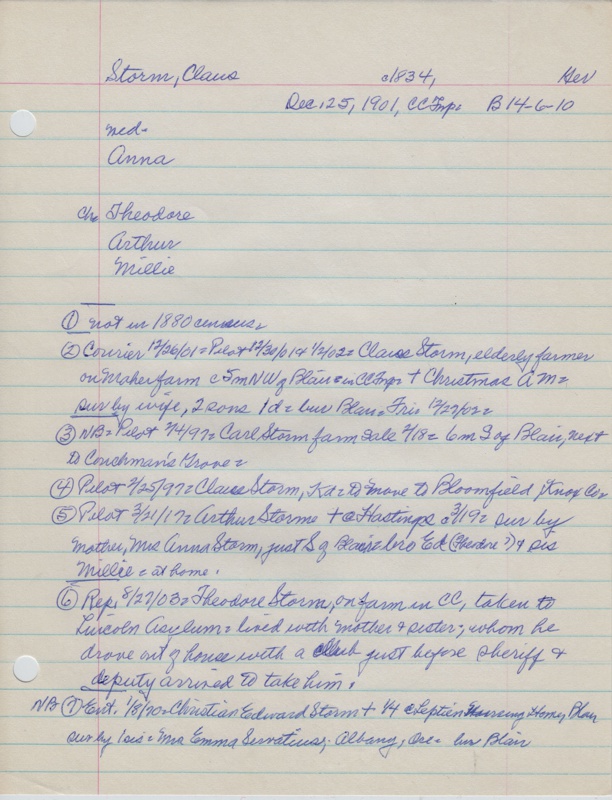 Storm, Claus c1834, Ger
Dec. 25, 1901, CC Twp= B14-6-10
md-
Anna
ch= Theodore
Arthur
Millie
① not in 1880 census=
② Courier 12/26/01= Pilot 12/30/01 & 1/2/02= Claus Storm, elderly farmer
on Maher farm c5m NW of Blair= in CC Twp= + Christmas AM=
sur by wife, 2 sons 1 d= bur Blair= Fri 12/27/02=
③ NB= Pilot 2/4/97= Carl Storm farm sale 2/18= 6m S of Blair, next
to Couchman's Grove=
④ Pilot 2/25/97= Claus Storm, Kd= to move to Bloomfield, Knox Co=
⑤ Pilot 3/21/17= Arthur Storm= + @ Hastings c3/19= sur by
mother, Mrs Anna Storm, just S of Blair= bro Ed (Theodore?) & sis
Millie= at home.
⑥ Rep. 8/27/03= Theodore Storm, on farm in CC, taken to
Lincoln Asylum= lived with mother & sister; whom he
drove out of house with a club just before sheriff &
deputy arrived to take him.
NB ⑦ Ent. 1/8/70= Christian Edward Storm + 1/4 @ Nursing Home, Blair
sur by 1 sis= Mrs Emma Servatius; Albany, Ore= bur Blair